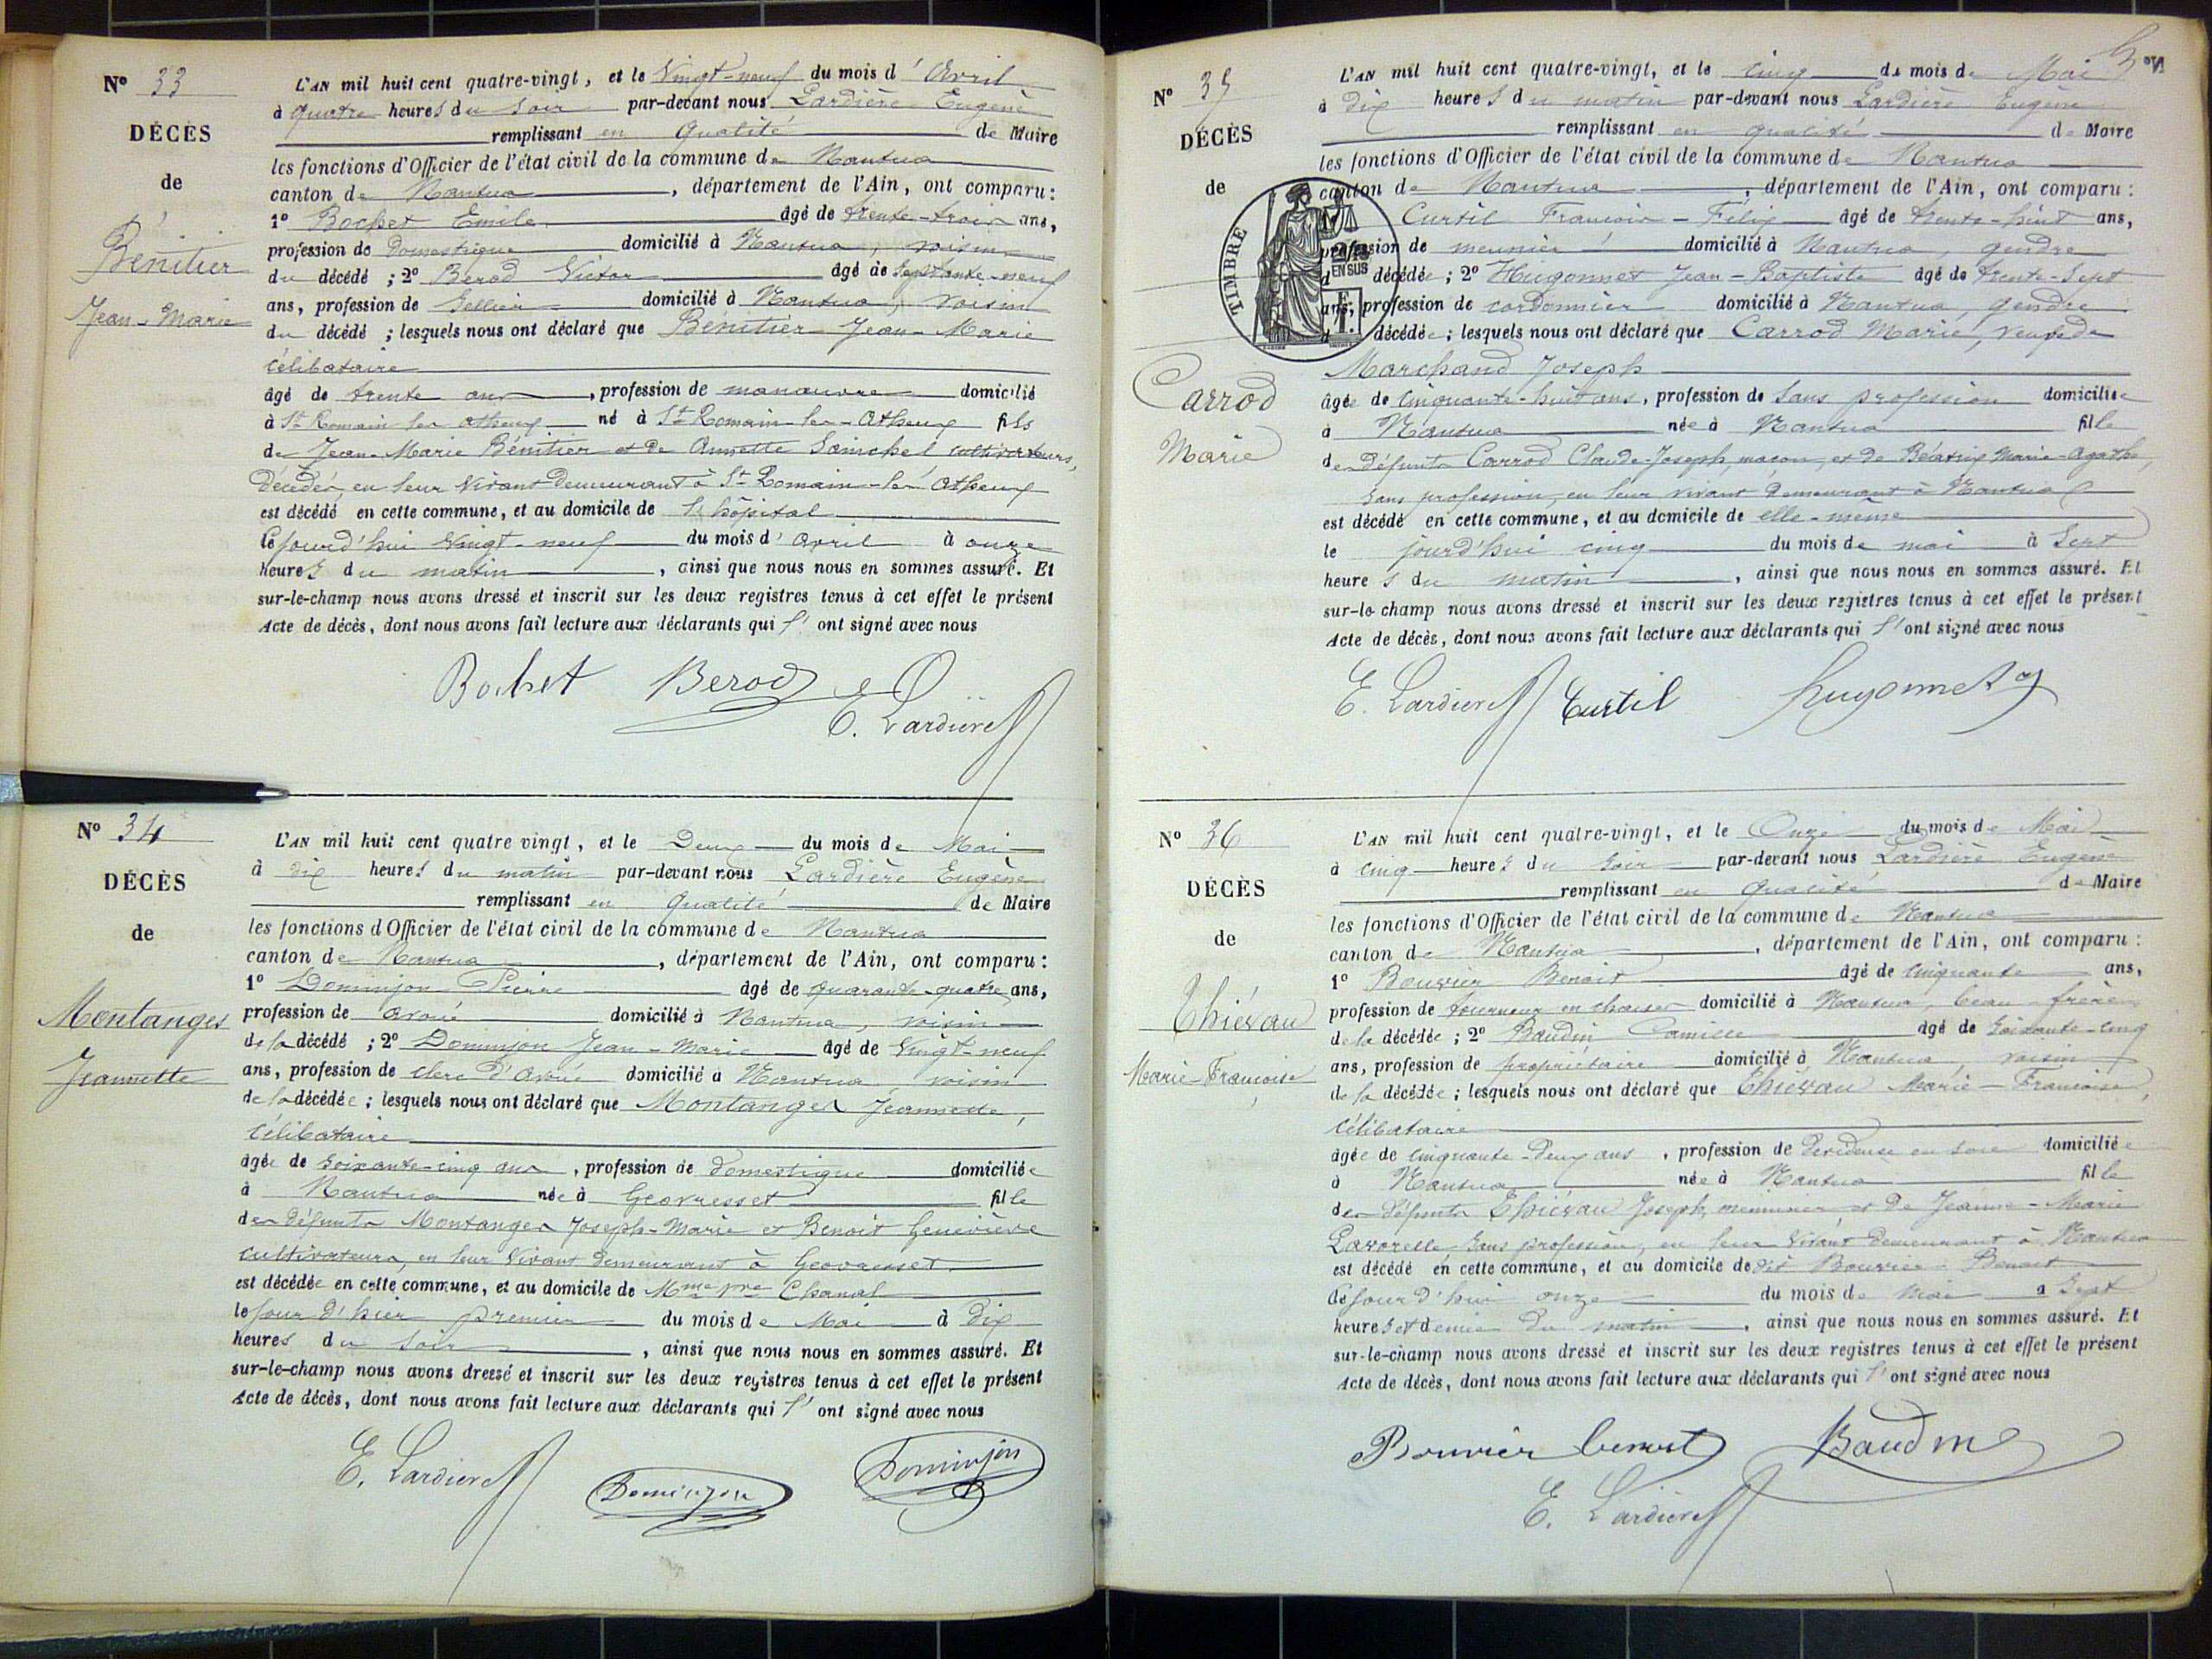 Nº 33
DÉCÈS
de
Bénitier
Jean-Marie
L'AN mil huit cent quatre-vingt, et le Vingt-neuf du mois d'Avril
à quatre heures du soir par-devant nous Lardière Eugène
remplissant en qualité de Maire
les fonctions d'Officier de l'état civil de la commune de Nantua
canton de Nantua, département de l'Ain, ont comparu:
1º Bochet Emile âgé de trente-trois ans,
profession de Domestique domicilié à Nantua, voisin
du décédé ; 2º Berod Victor âgé de septante-neuf
ans, profession de Sellier domicilié à Nantua, voisin
du décédé ; lesquels nous ont déclaré que Bénitier Jean-Marie
célibataire
âgé de trente ans, profession de manœuvre domicilié
à St Romain les Atheux né à St Romain-les-Atheux fils
de Jean-Marie Bénitier et de Annette cultivateurs,
décédés, en leur vivant demeurant à St Romain-les Atheux
est décédé en cette commune, et au domicile de l'hôpital
cejourd'hui vingt-neuf du mois d'avril à onze
heures du matin, ainsi que nous nous en sommes assuré. Et
sur-le-champ nous avons dressé et inscrit sur les deux registres tenus à cet effet le présent
Acte de décès, dont nous avons fait lecture aux déclarants qui l'ont signé avec nous
Bochet Berod
E. Lardière
Nº 34
DÉCÈS
de
Montanges
Jeannette
L'AN mil huit cent quatre vingt, et le Deux du mois de Mai
à dix heures du matin par-devant nous Lardière Eugène
remplissant en qualité de Maire
les fonctions d'Officier de l'état civil de la commune de Nantua
canton de Nantua, département de l'Ain, ont comparu:
1º Dominjon Pierre âgé de quarante-quatre ans,
profession de avoué domicilié à Nantua, voisin
de la décédé ; 2º Dominjon Jean-Marie âgé de Vingt-neuf
ans, profession de clerc d'avoué domicilié à Nantua voisin
de la décédée ; lesquels nous ont déclaré que Montanges Jeannette,
célibataire
âgée de soixante-cinq ans, profession de domestique domiciliée
à Nantua née à Geovresset fille
des défunts Montanges Joseph-Marie et Benoit Geneviève
cultivateurs, en leur vivant demeurant à Geovresset
est décédée en cette commune, et au domicile de Mme Vve Chanal
le jour d'hier premier du mois de Mai à dix
heures du soir, ainsi que nous nous en sommes assuré. Et
sur-le-champ nous avons dressé et inscrit sur les deux registres tenus à cet effet le présent
Acte de décès, dont nous avons fait lecture aux déclarants qui l'ont signé avec nous
E. Lardière Dominjon Dominjon
Nº 35
DÉCÈS
de
Carrod
Marie
L'AN mil huit cent quatre-vingt, et le cinq du mois de Mai
à dix heures du matin par-devant nous Lardière Eugène
remplissant en qualité de Maire
les fonctions d'Officier de l'état civil de la commune de Nantua
canton de Nantua, département de l'Ain, ont comparu:
Curtil François-Félix âgé de trente-huit ans,
profession de meunier domicilié à Nantua, gendre
décédée ; 2º Hugonnet Jean-Baptiste âgé de trente-sept
ans, profession de cordonnier domicilié à Nantua, gendre
décédée ; lesquels nous ont déclaré que Carrod Marie, veuve de
Marchand Joseph
âgée de cinquante-huit ans, profession de sans profession domiciliée
à Nantua née à Nantua fille
des défunts Carrod Claude-Joseph, maçon, et de Béatrix Marie-Agathe,
sans profession, en leur vivant demeurant à Nantua
est décédé en cette commune, et au domicile de elle-même
le jourd'hui cinq du mois de mai à sept
heures du matin, ainsi que nous nous en sommes assuré. Et
sur-le champ nous avons dressé et inscrit sur les deux registres tenus à cet effet le présent
Acte de décès, dont nous avons fait lecture aux déclarants qui l'ont signé avec nous
TIMBRE
2/10
EN SUS
E. Lardière Curtil hugonnet
Nº 36
DÉCÈS
de
Chiévau
Marie-Françoise
L'AN mil huit cent quatre-vingt, et le Onze du mois de Mai
à cinq heures du soir par-devant nous Lardière Eugène
remplissant en qualité de Maire
les fonctions d'Officier de l'état civil de la commune de Nantua
canton de Nantua, département de l'Ain, ont comparu:
1º Bouvier Benoit âgé de cinquante ans,
profession de tourneur en chaises domicilié à Nantua, beau-frère
de la décédée ; 2º Baudin Camille âgé de soixante-cinq
ans, profession de propriétaire domicilié à Nantua, voisin
de la décédée ; lesquels nous ont déclaré que Chiévau Marie-Françoise,
célibataire
âgée de cinquante-deux ans, profession de dévideuse en soie domiciliée
à Nantua née à Nantua fille
des défunts Chiévau Joseph, menuisier et de Jeanne-Marie
Lavorelle sans profession, en leur vivant demeurant à Nantua
est décédé en cette commune, et au domicile de dit Bouvier Benoit
cejourd'hui onze du mois de mai à sept
heures et demie du matin, ainsi que nous nous en sommes assuré. Et
sur-le-champ nous avons dressé et inscrit sur les deux registres tenus à cet effet le présent
Acte de décès, dont nous avons fait lecture aux déclarants qui l'ont signé avec nous
Bouvier benoit Baudin
E. Lardière